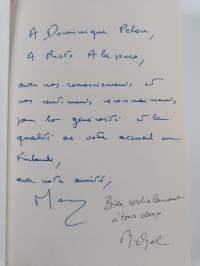 A Dominique Pelou,
A Risto Alapuro,
avec nos remerciements et
nos sentiments reconnaissants
pour la générosité et la
qualité de votre accueil en
Finlande,
avec notre amitié,
Bien cordialement
à tous deux
Michel